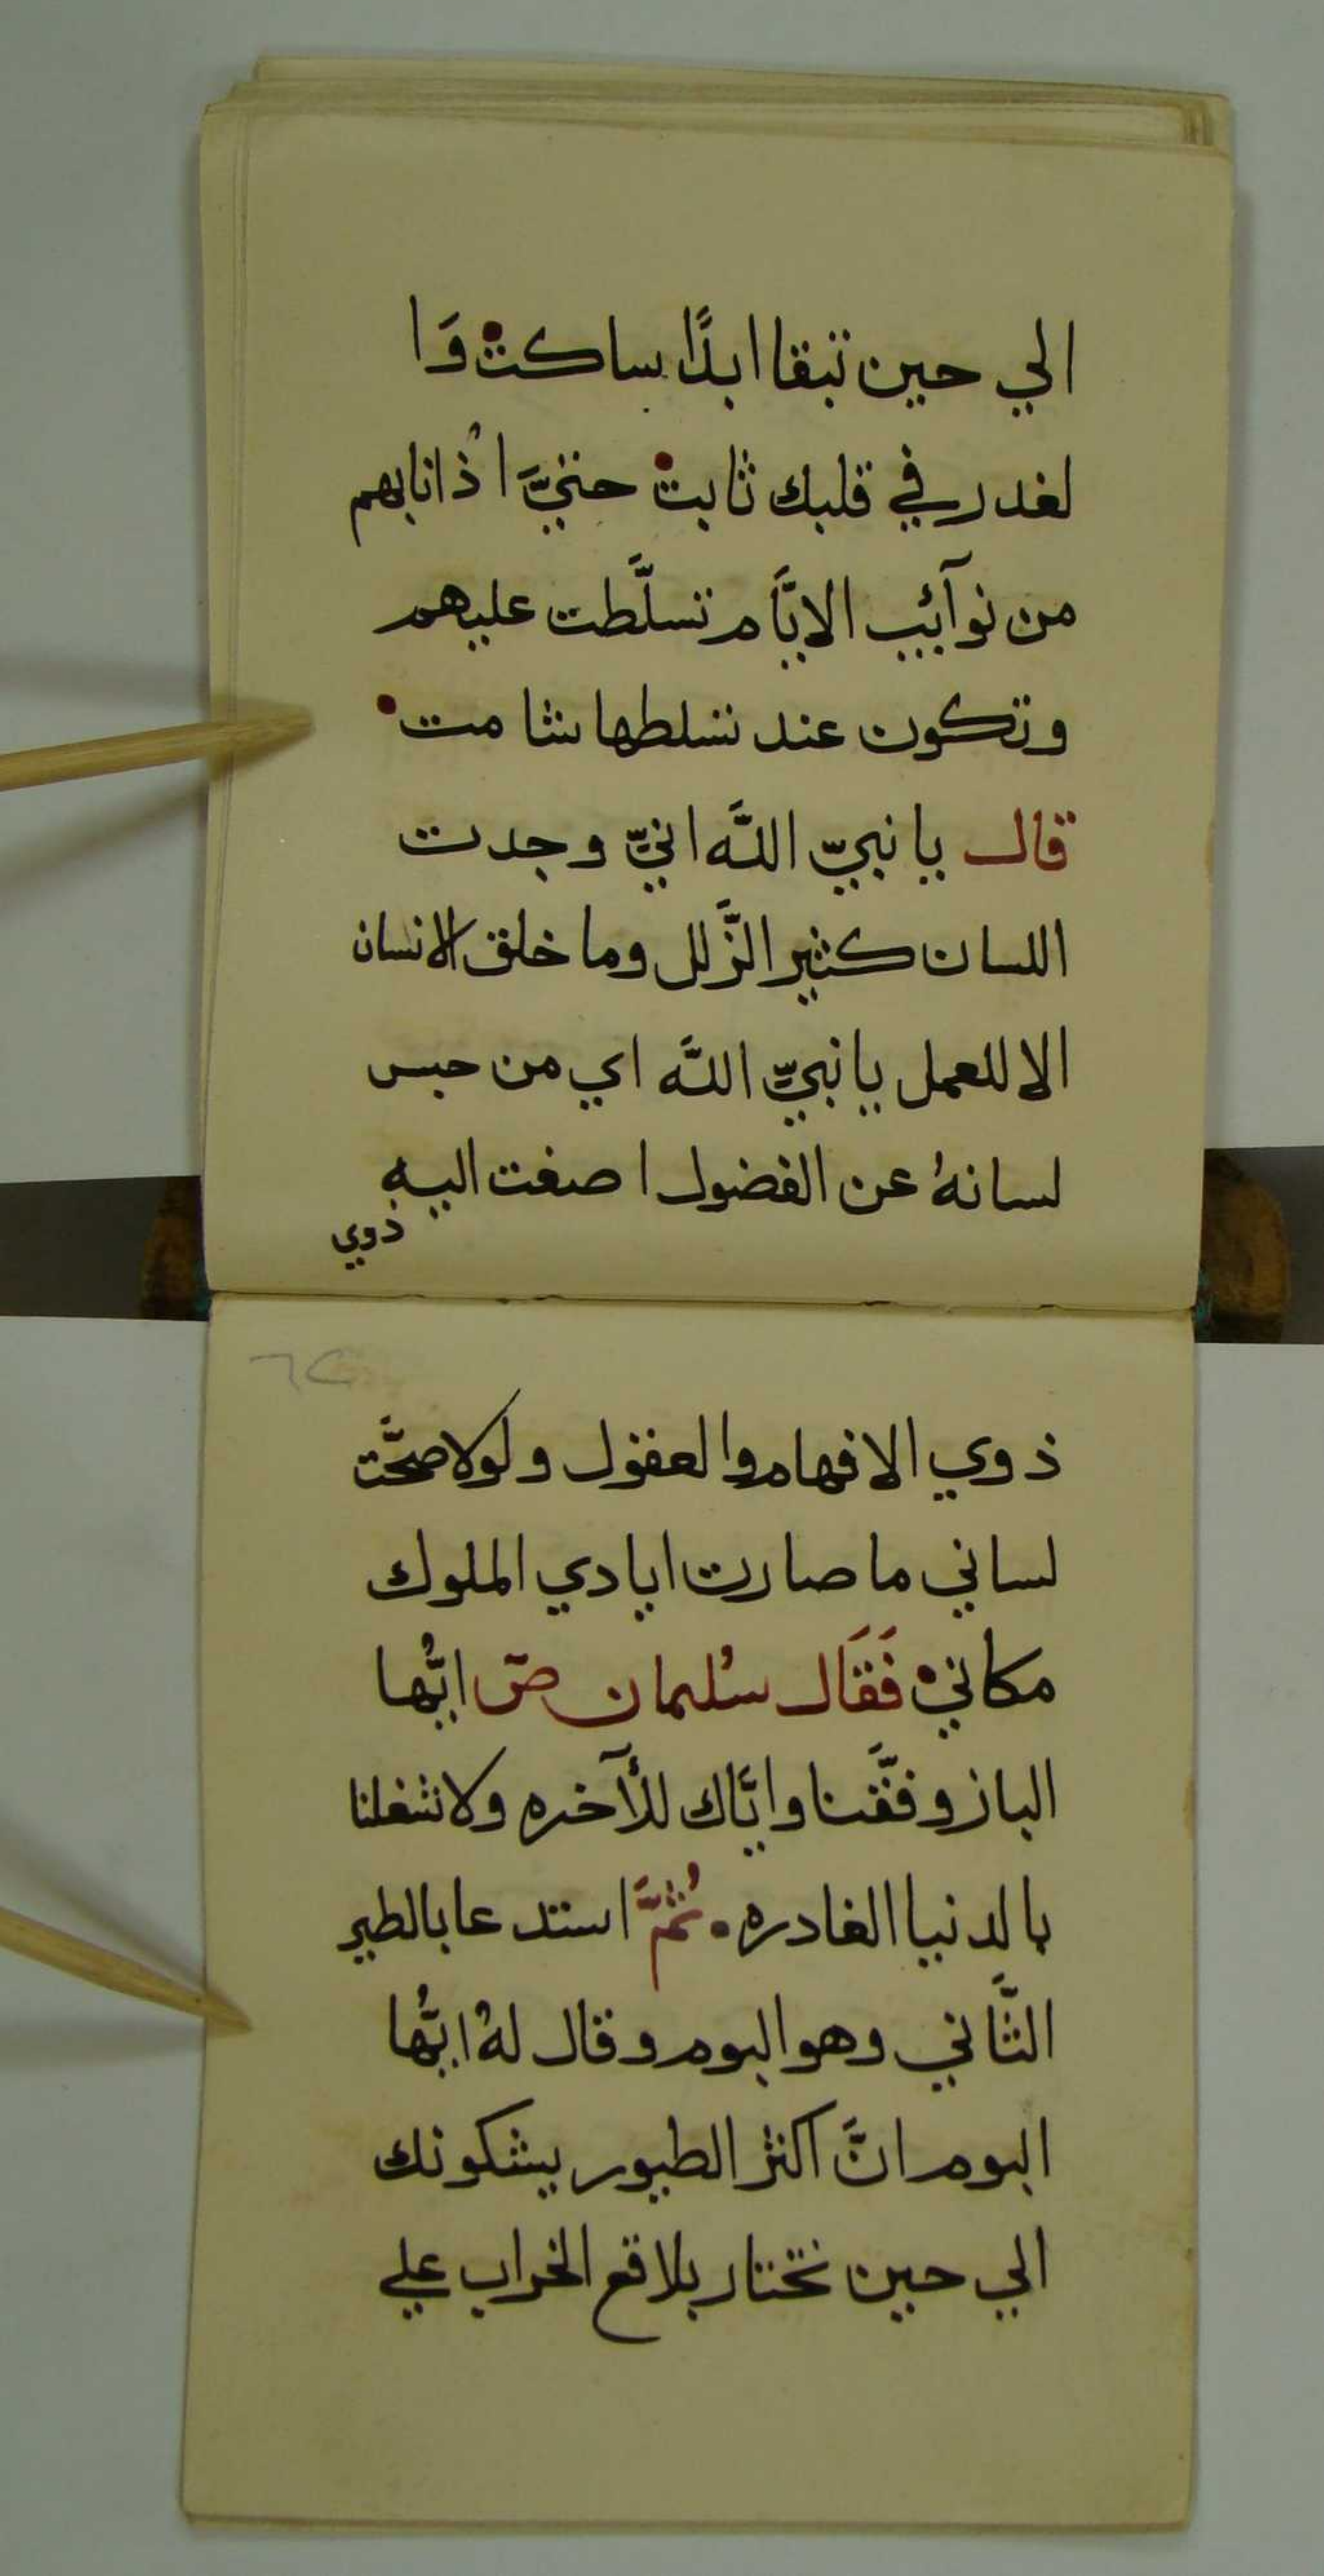 الي حين تبقا ابدًا ساكتْ وَا
لغدر في قلبك ثابتْ حتيَّ اذُانابهم
من نوآئب الايَّام تسلَّطت عليهم
وتكون عند تسلطها شامت
قال يا نبيّ اللَّه انيّ وجدت
اللسان كثير الزَّلل وما خلق الانسان
الا للعمل يا نبيّ اللَّه اي من حبس
لسانهُ عن الفضول اصغت اليه
ذوي
ذوي الافهام والعقول ولولا صحَّت
لساني ما صارت ايادي الملوك
مكانيْ فَقَال سُليمان صٓ ايُّها
الباز وفَّقنا وايَّاك للأٓخره ولا تشغلنا
بالدنيا الغادره. ثُمَّ استدعا بالطير
الثَّاني وهو البوم وقال لهُ ايُّها
البوم انَّ اكثر الطيور يشكونك
الي حين تختار بلاقع الخراب علي